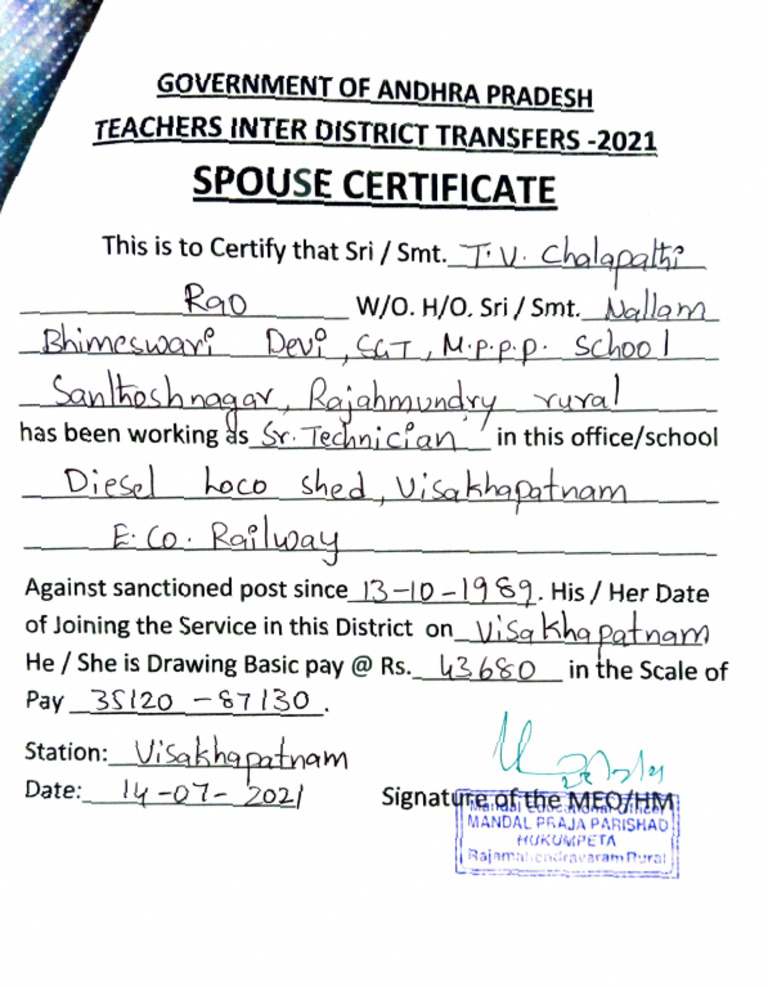 GOVERNMENT OF ANDHRA PRADESH
TEACHERS INTER DISTRICT TRANSFERS -2021
SPOUSE CERTIFICATE
This is to Certify that Sri / Smt. T. V. Chalapathi
Rao W/O. H/O. Sri / Smt. Nallam
Bhimeswari Devi, SGT, M.P.P.P. School
Santhoshnagar, Rajahmundry rural
has been working as Sr. Technician in this office/school
Diesel Loco shed, Visakhapatnam
E. Co. Railway
Against sanctioned post since 13-10-1989. His / Her Date
of Joining the Service in this District on Visakhapatnam
He / She is Drawing Basic pay @ Rs. 43680 in the Scale of
Pay 35120 - 87130.
Station: Visakhapatnam
Date: 14-07-2021 Signature of the MEO/HM
Mandal Educational Officer
MANDAL PRAJA PARISHAD
HUKUMPETA
Rajamahendravaram Rural